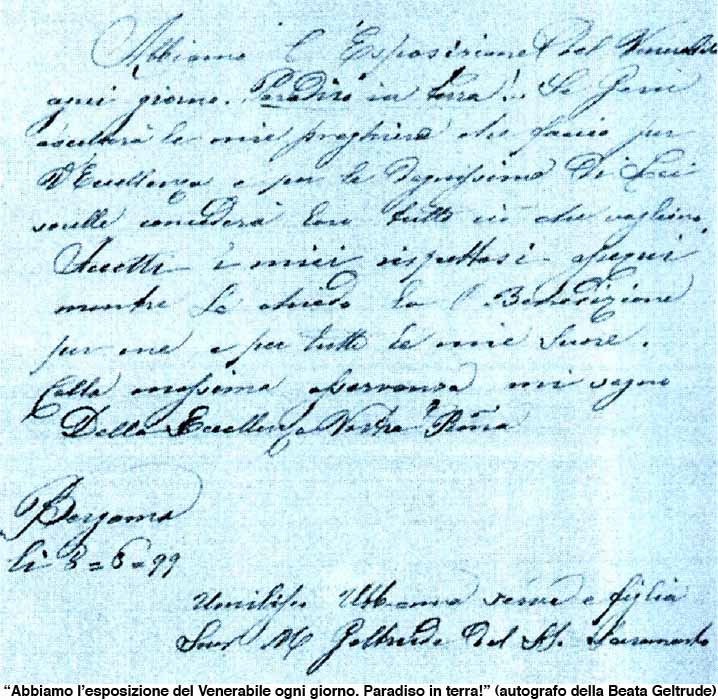 Abbiamo l'Esposizione del Venerabile
ogni giorno. Paradiso in terra!.. Se Gesù
ascolterà le mie preghiere che faccio per
V. Eccellenza e per le degnissime di Lei
sorelle concederà loro tutto ciò che vogliono.
Accetti i miei rispettosi ossequi
mentre Le chiedo la S. Benedizione
per me e per tutte le mie Suore.
Colla massima osservanza mi segno
Della Eccellenza Vostra
Bergamo
li 8=6=99
Umiliss. Ubb.ma serva e figlia
Suor M. Geltrude del SS. Sacramento
“Abbiamo l’esposizione del Venerabile ogni giorno. Paradiso in terra!” (autografo della Beata Geltrude)